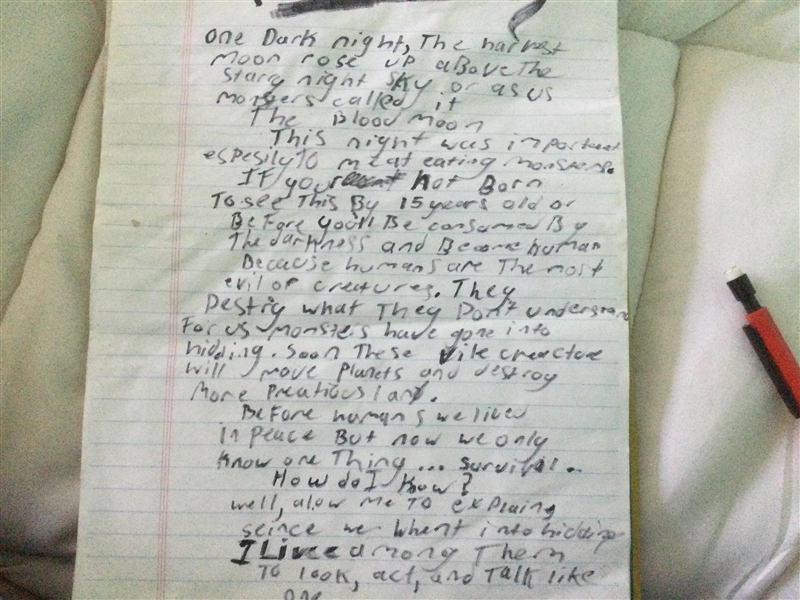 one Dark night, The harvest
moon rose up above The
starry night sky or as us
monsters called it
The Blood moon
This night was important
espesilyTo meat eating monsters.
IF your not Born
To see This By 15 years old or
BeFore you'll Be consumed By
The darkness and Become human
Because humans are The most
evil of creatures. They
Destriy what They Don't understand
For us monsters have gone into
hidding. Soon These vile creacture
will move Planets and destroy
More Preatious land.
BeFore humans we lived
in Peace But now we only
Know one Thing ... survival..
How do I Know?
well, alow me To explaing
seince we whent into hidding
I Live among Them
To look, act, and Talk like
one